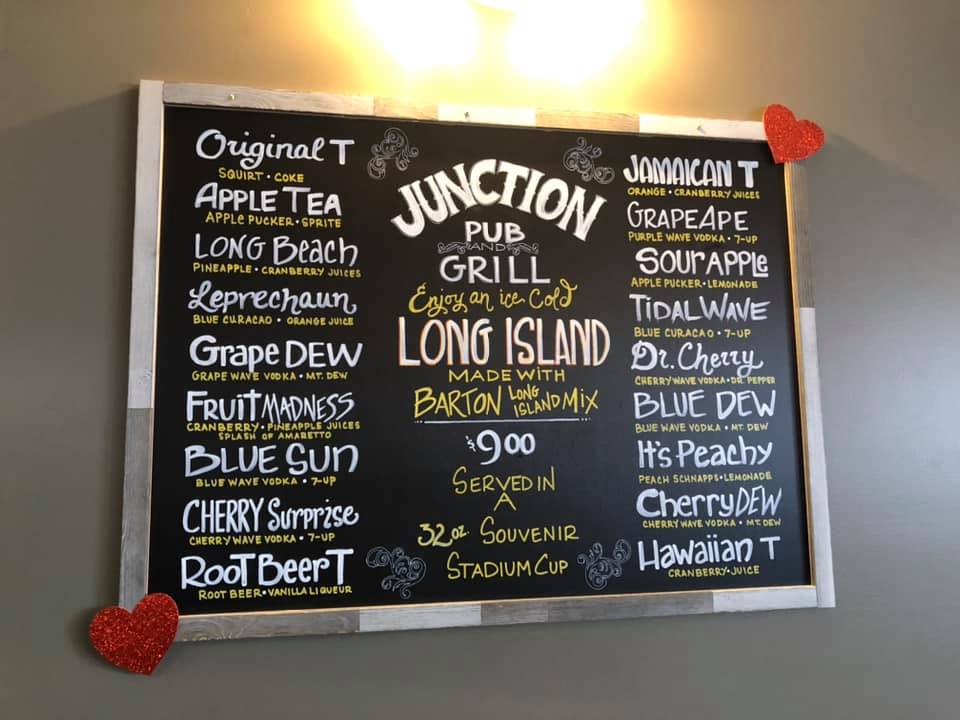 Original T
SQUIRT • COKE
APPLE TEA
APPLE PUCKER • SPRITE
LONG Beach
PINEAPPLE • CRANBERRY JUICES
Leprechaun
BLUE CURACAO • ORANGE JUICE
Grape DEW
GRAPE WAVE VODKA • MT. DEW
FRUIT MADNESS
CRANBERRY • PINEAPPLE JUICES
SPLASH OF AMARETTO
BLUE SUN
BLUE WAVE VODKA • 7-UP
CHERRY Surprise
CHERRY WAVE VODKA • 7-UP
ROOT BeerT
ROOT BEER • VANILLA LIQUEUR
JUNCTION
PUB
AND
GRILL
Enjoy an ice Cold
LONG ISLAND
MADE WITH
BARTON LONG ISLAND MIX
$9.00
SERVED IN
A
32oz. SOUVENIR
STADIUM CUP
JAMAICAN T
ORANGE • CRANBERRY JUICES
GRAPEAPE
PURPLE WAVE VODKA • 7-UP
SOUR APPLE
APPLE PUCKER • LEMONADE
TIDAL WAVE
BLUE CURACAO • 7-UP
Dr. Cherry
CHERRY WAVE VODKA • DR. PEPPER
BLUE DEW
BLUE WAVE VODKA • MT DEW
It's Peachy
PEACH SCHNAPPS • LEMONADE
Cherry DEW
CHERRY WAVE VODKA • MT. DEW
Hawaiian T
CRANBERRY • JUICE